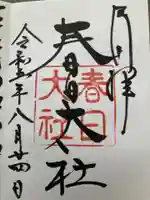 奉拝
春日大社
春日
大社
令和五年八月廿四日